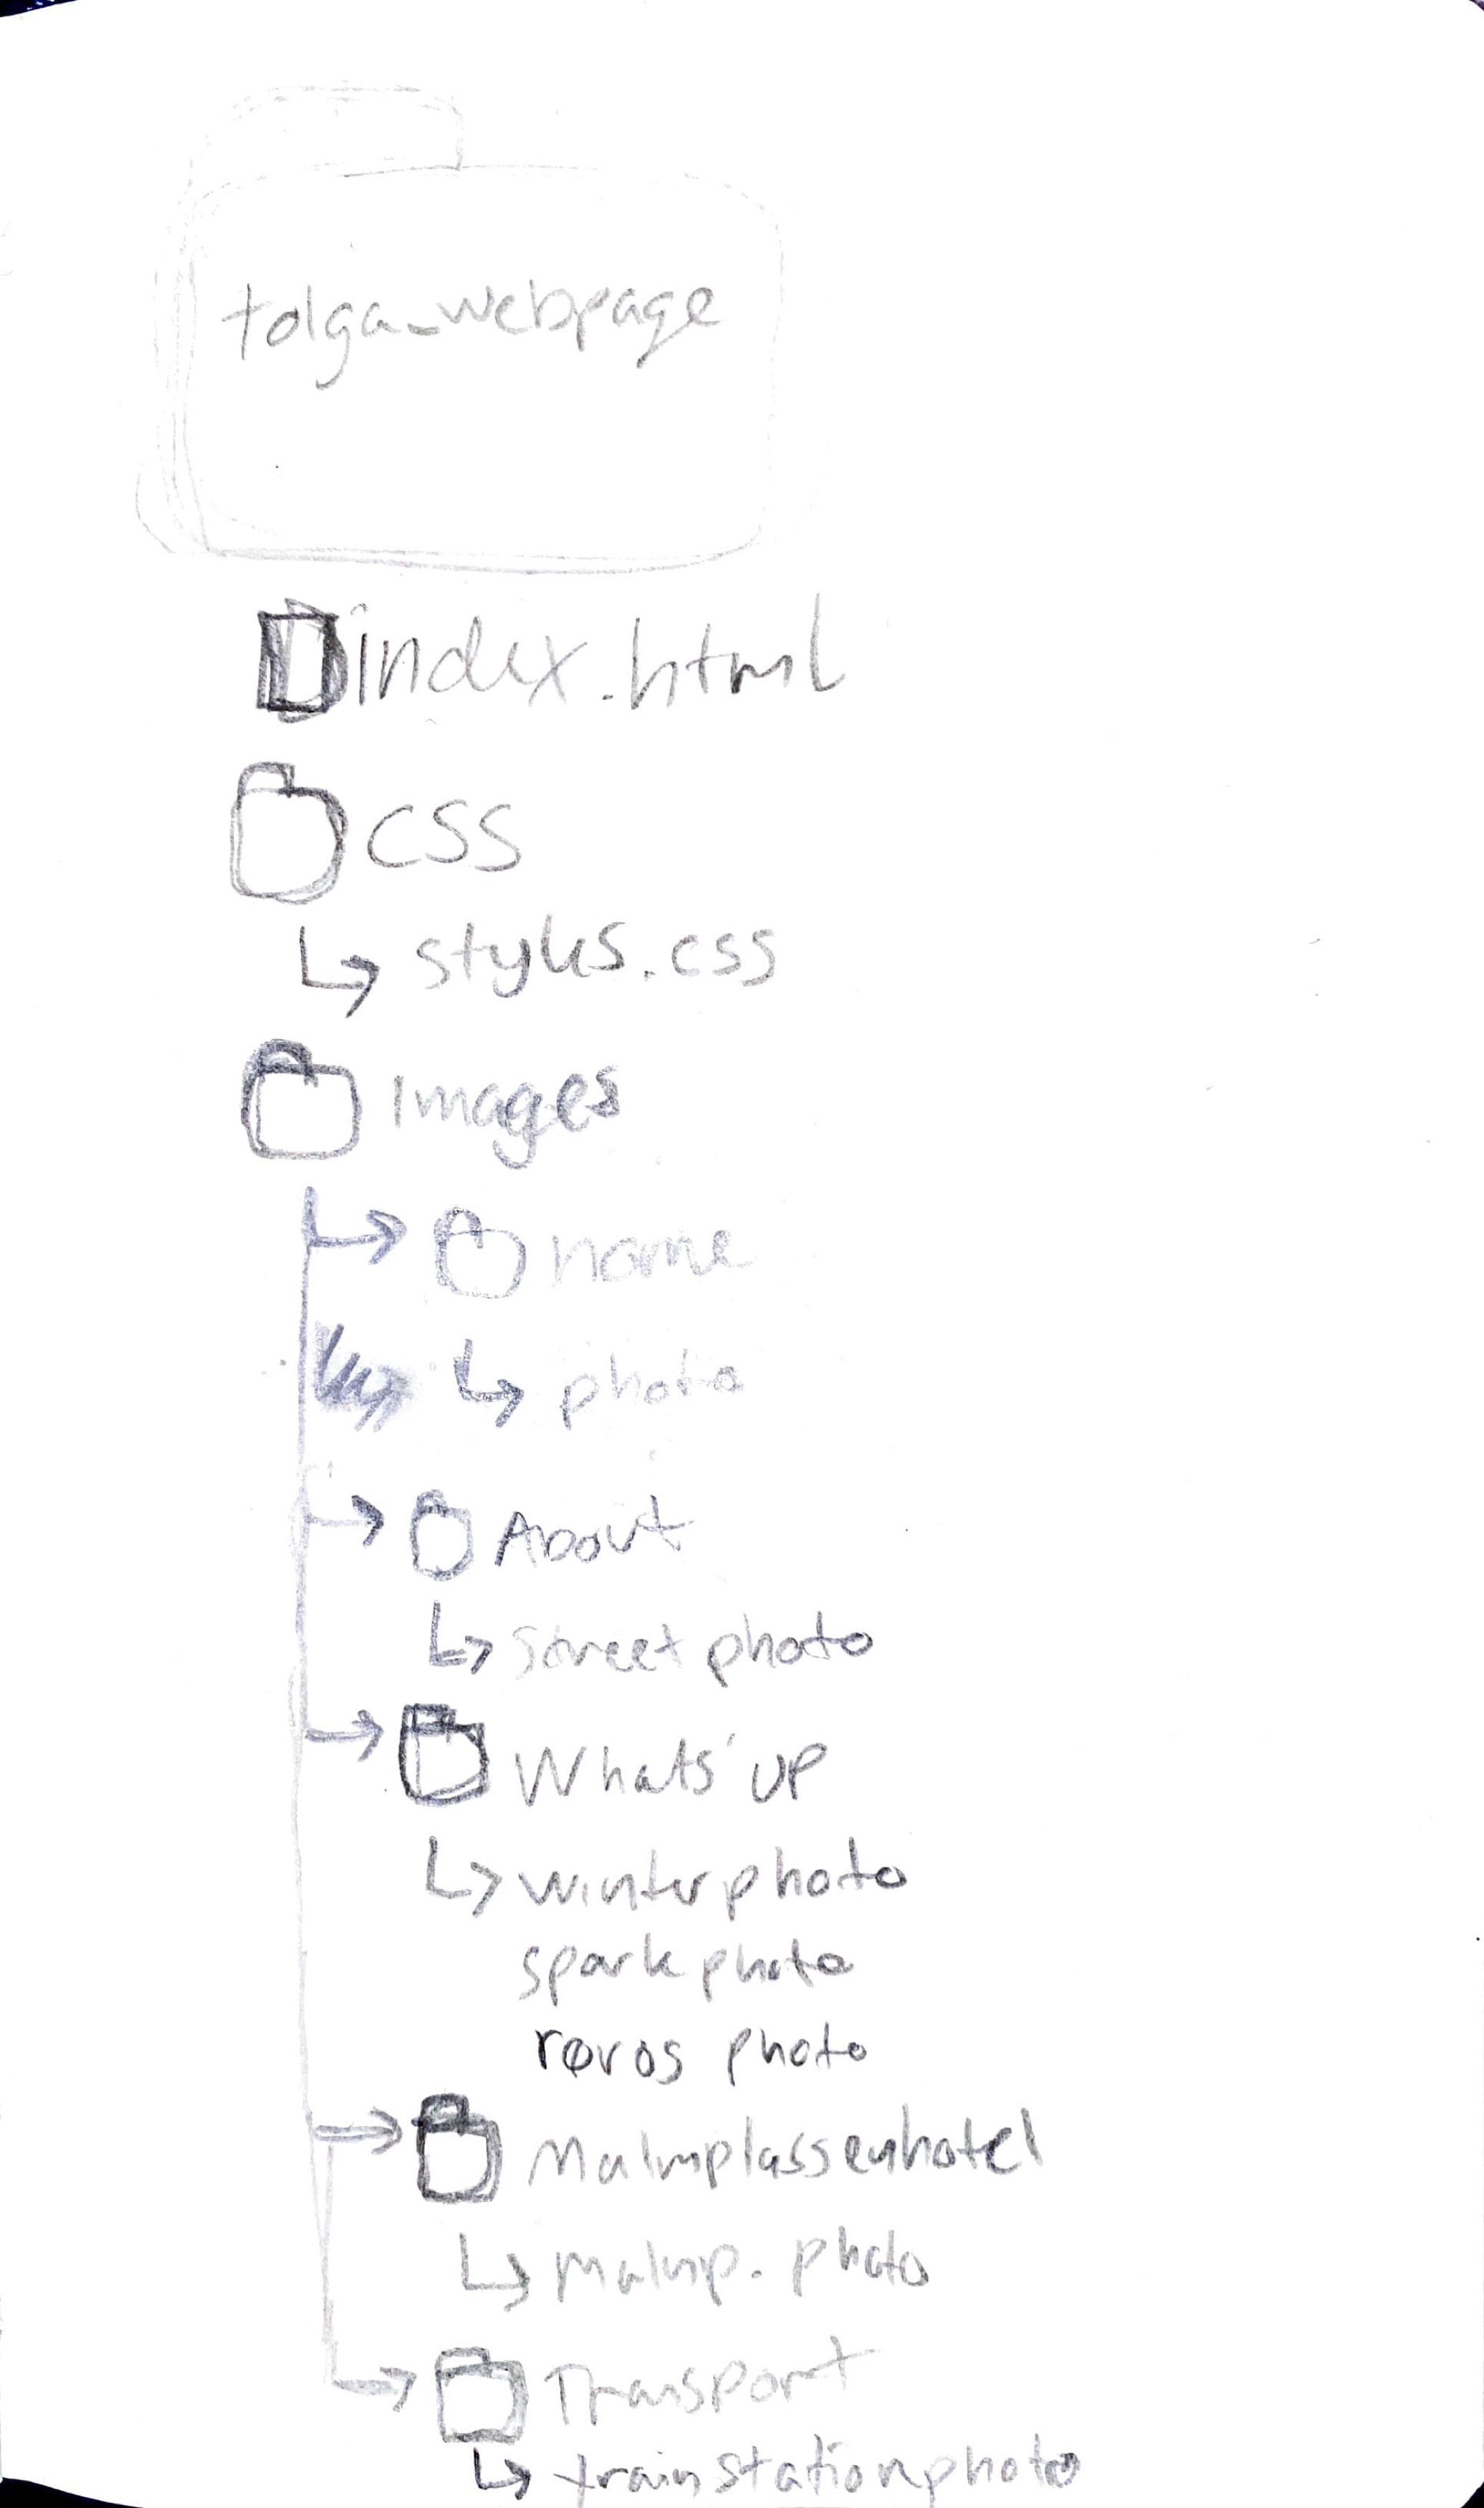 tolga_webpage
index.html
css
styles.css
images
home
photo
About
street photo
Whats' up
winter photo
spark photo
røros photo
Malmplassenhotel
malmp. photo
Transport
train station photo